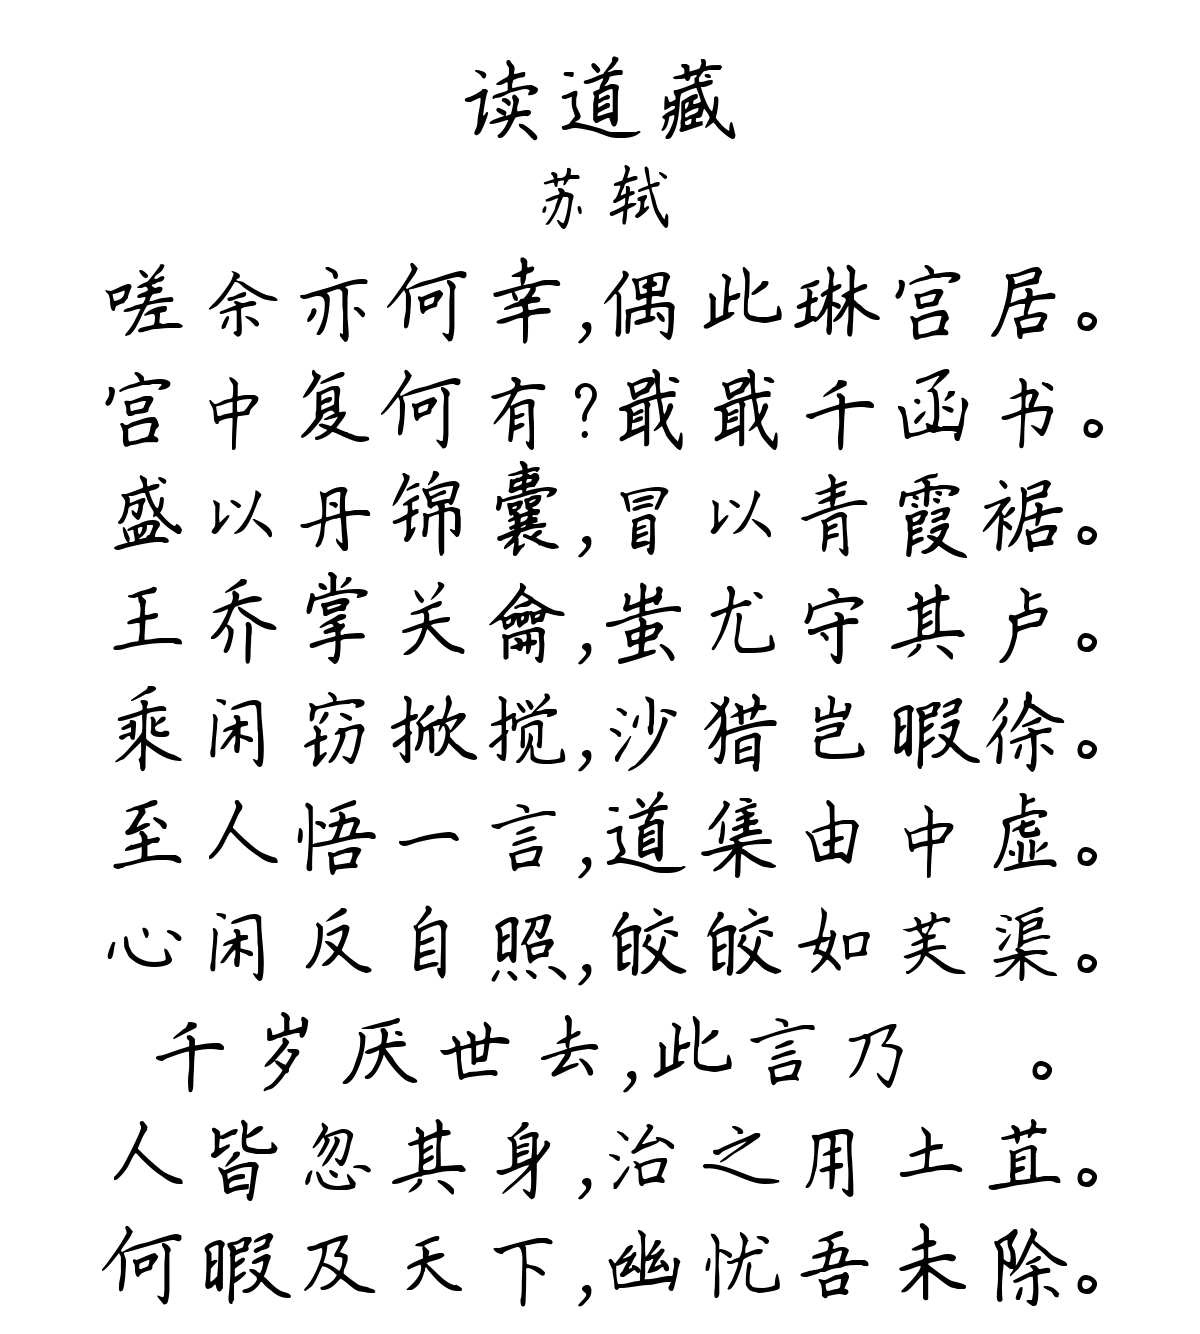 读道藏
苏轼
嗟余亦何幸,偶此琳宫居。
宫中复何有?戢戢千函书。
盛以丹锦囊,冒以青霞裾。
王乔掌关龠,蚩尤守其卢。
乘闲窃掀搅,沙猎岂暇徐。
至人悟一言,道集由中虚。
心闲反自照,皎皎如芙渠。
千岁厌世去,此言乃　。
人皆忽其身,治之用土苴。
何暇及天下,幽忧吾未除。